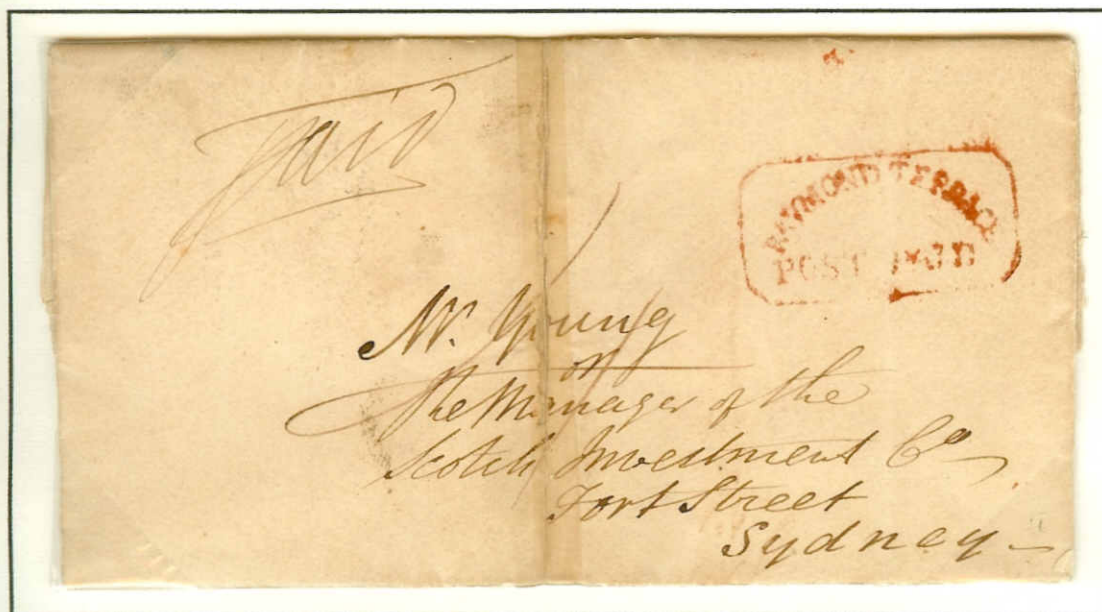 paid
RAYMOND TERRACE
POST PAID
Mr. Young
or
The Manager of the
Scotch Investment Co
Fort Street
Sydney